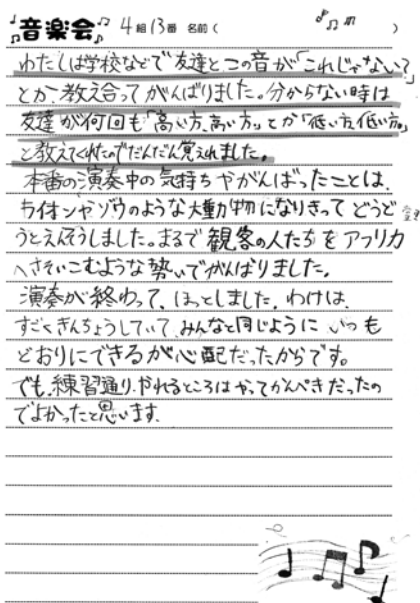 音楽会 4組13番 名前( )
わたしは学校などで友達と、この音が「これじゃない?」
とか、教え合ってがんばりました。分からない時は
友達が何回も「高い方、高い方。」とか「低い方、低い方。」
と教えてくれたのでだんだん覚えれました。
本番の演奏中の気持ちやがんばったことは、
ライオンやゾウのような大動物になりきってどうど
うとえんそうしました。まるで観客の人たちをアフリカ
へさそいこむような勢いでがんばりました。
演奏が終わって、ほっとしました。わけは、
すごくきんちょうしていて、みんなと同じように いつも
どおりにできるが心配だったからです。
でも、練習通り、やれるところはやってかんぺきだったの
でよかったと思います。